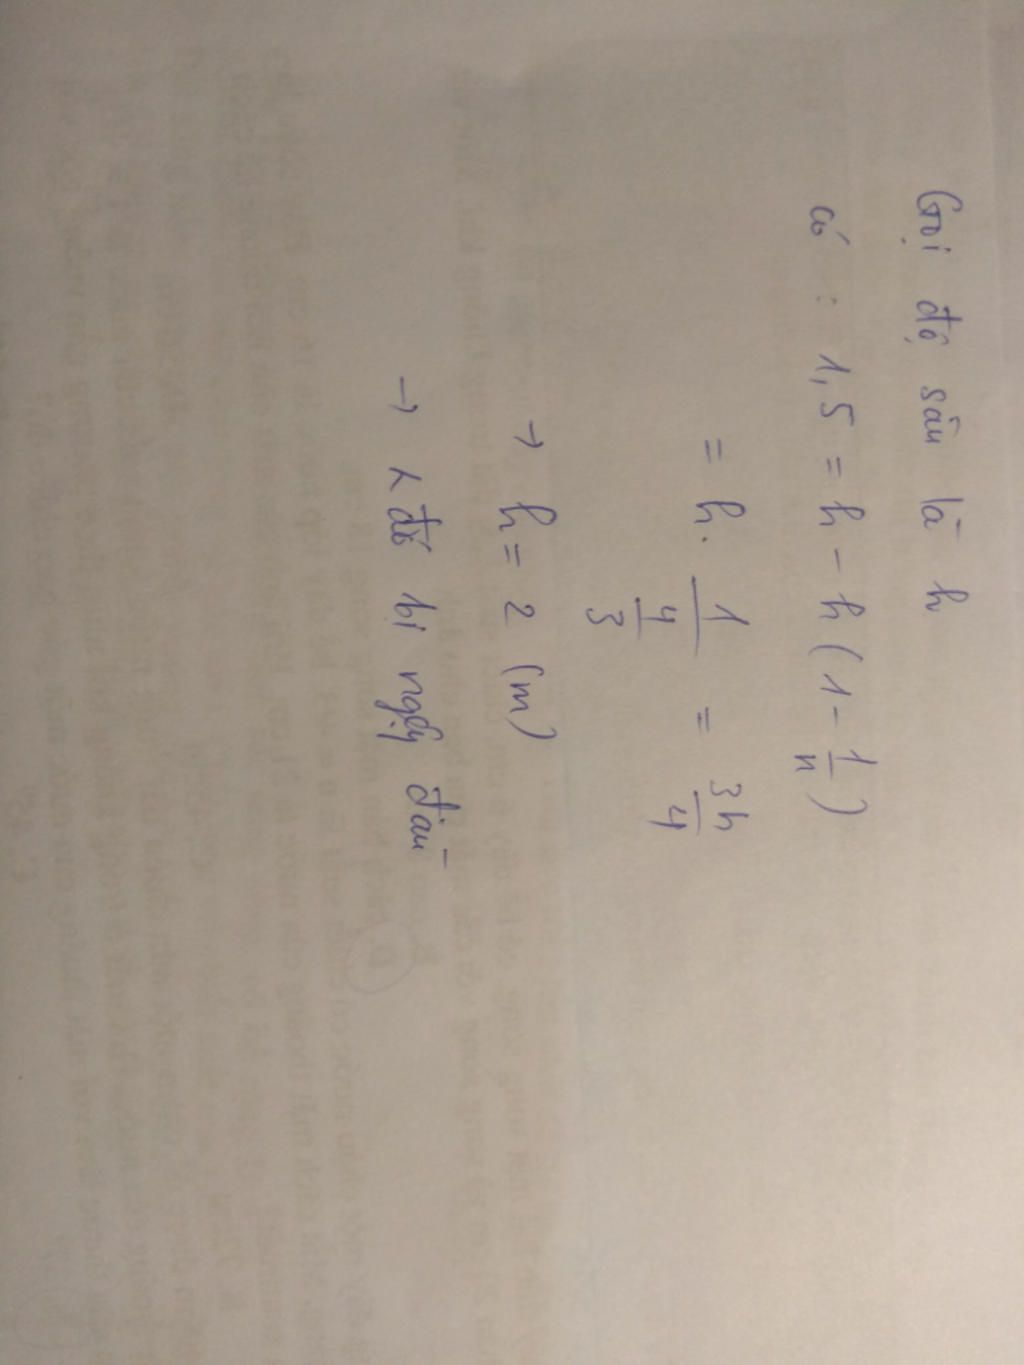 Gọi độ sâu là h
có : 1,5 = h - h ( 1 - 1/n )
= h. 1/(4/3) = 3h/4
→ h = 2 (m)
→ đó bị ngập đầu